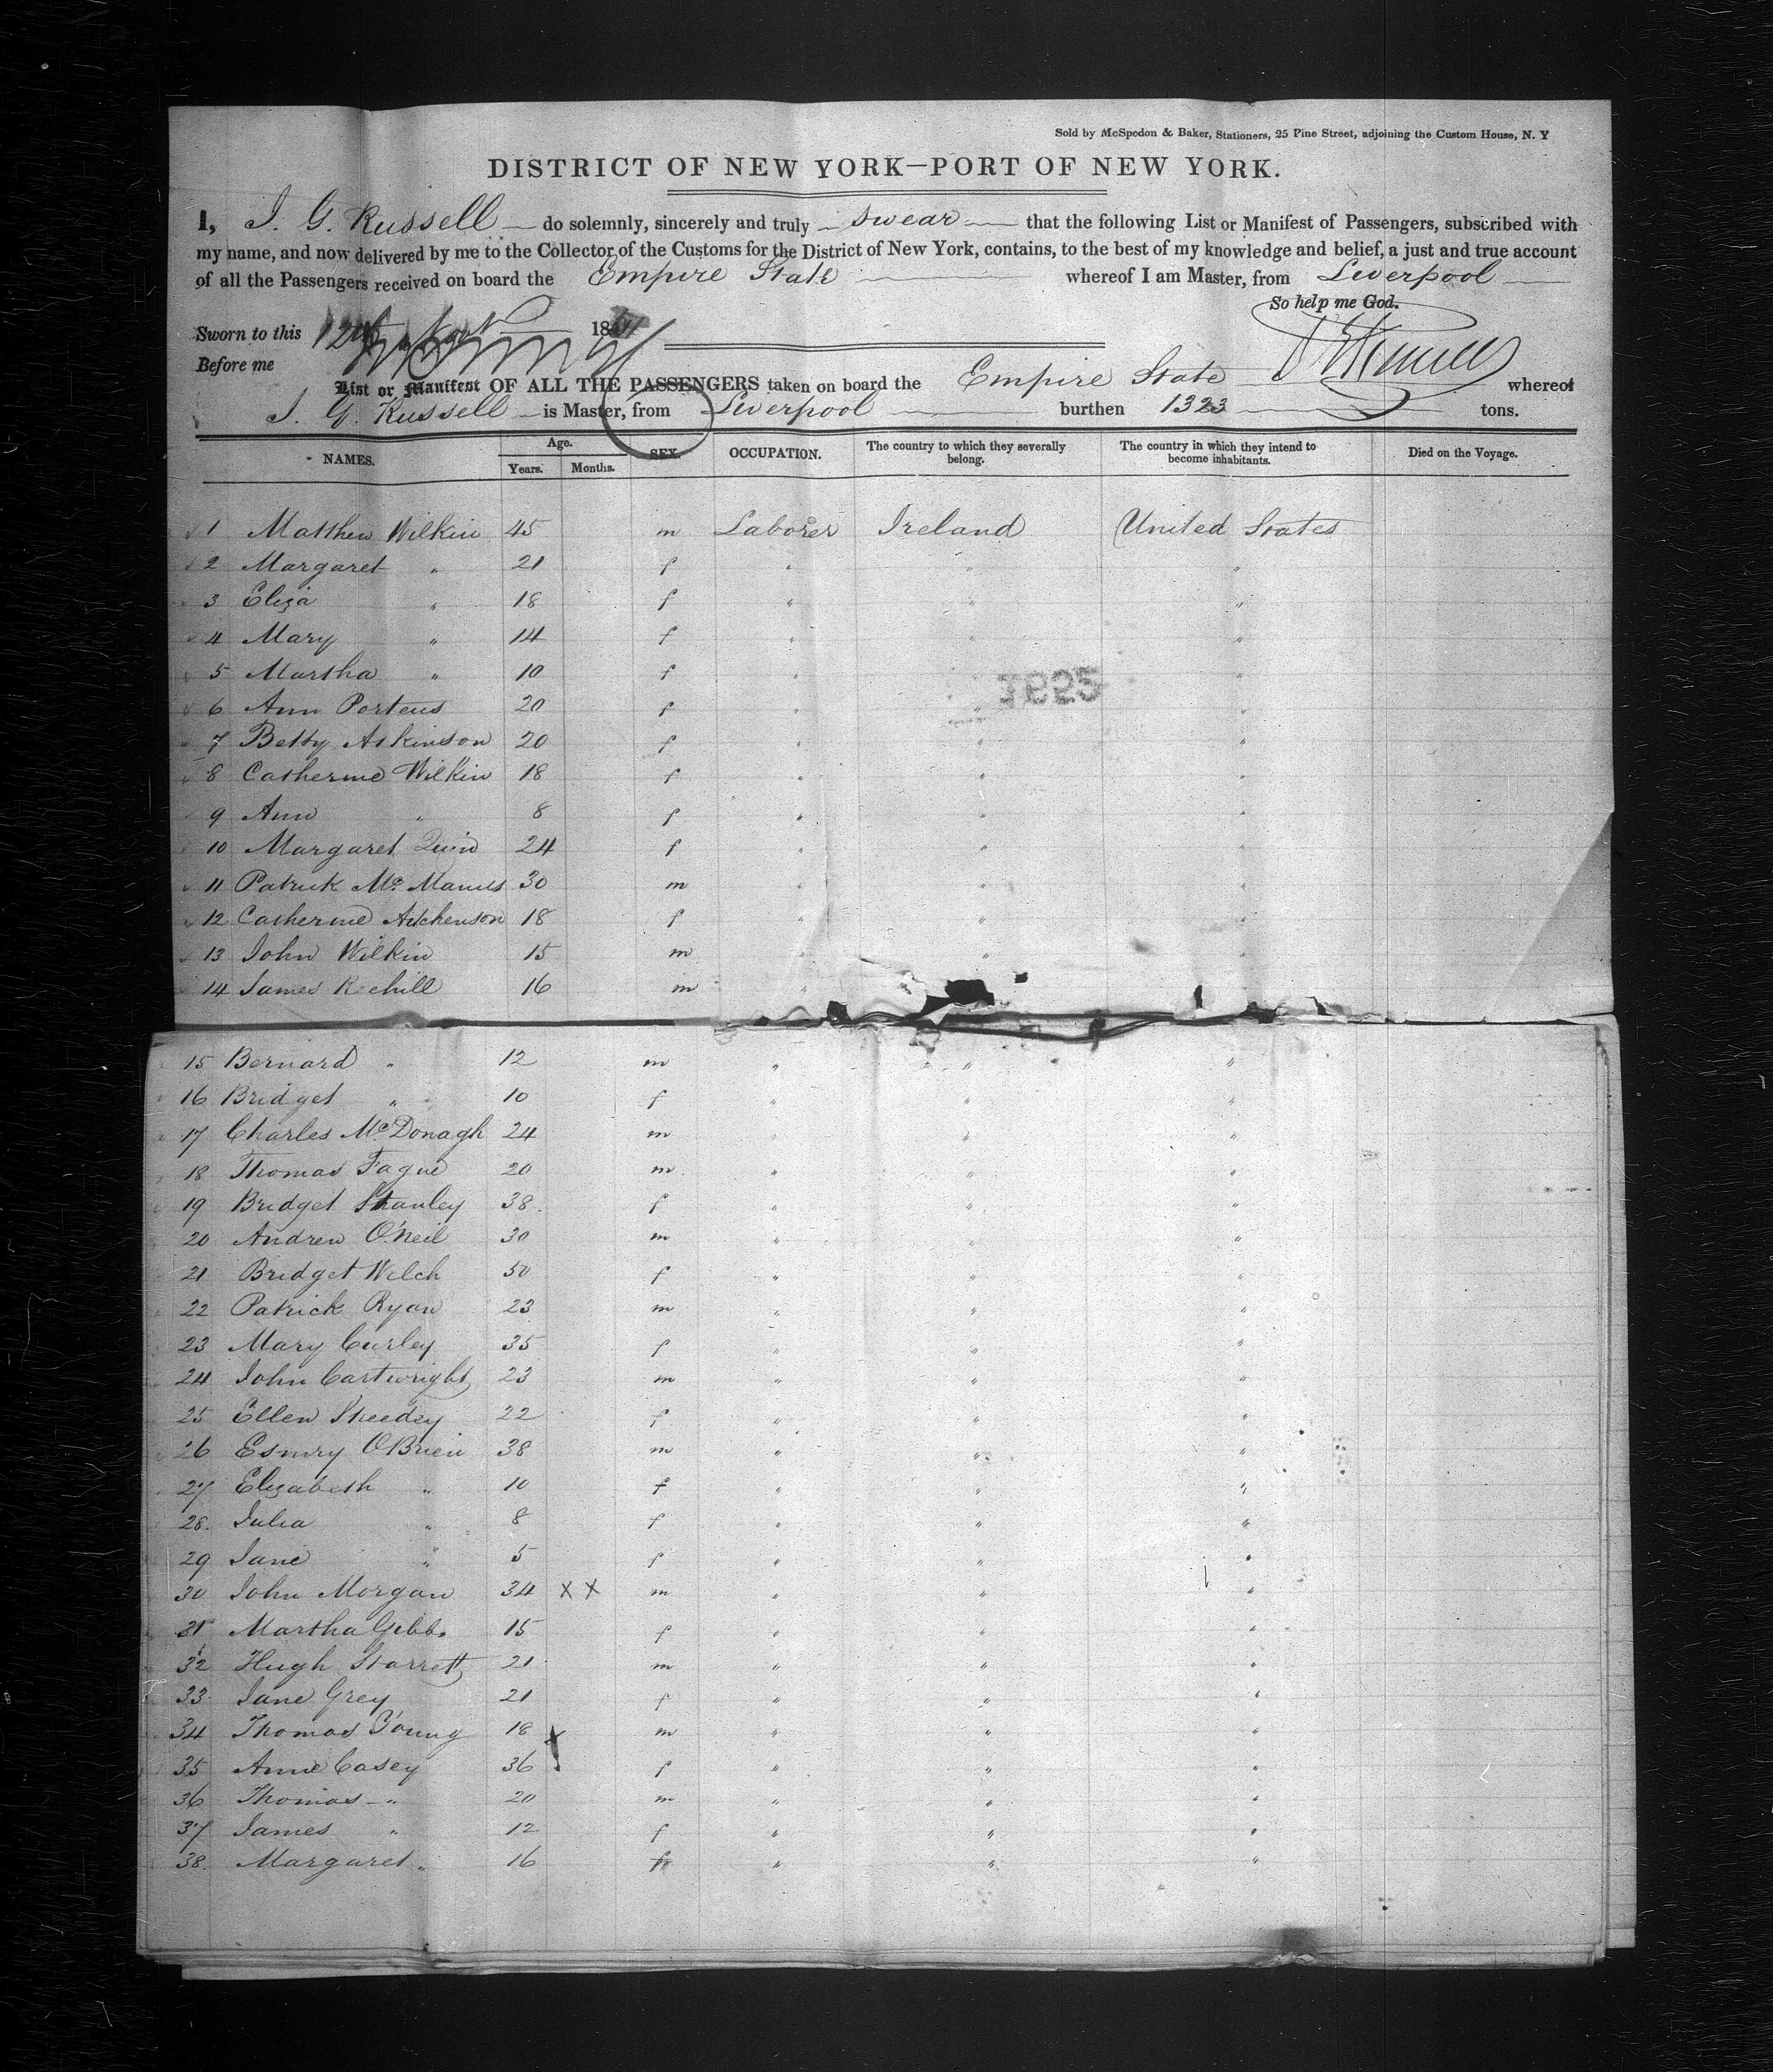 Sold by McSpedon & Baker, Stationers, 25 Pine Street, adjoining the Custom House, N. Y
DISTRICT OF NEW YORK—PORT OF NEW YORK.
I, J. G. Russell do solemnly, sincerely and truly swear that the following List or Manifest of Passengers, subscribed with
my name, and now delivered by me to the Collector of the Customs for the District of New York, contains, to the best of my knowledge and belief, a just and true account
of all the Passengers received on board the Empire State whereof I am Master, from Liverpool
So help me God.
Sworn to this 12th 18
Before me
List or Manifest OF ALL THE PASSENGERS taken on board the Empire State whereof
J. G. Russell is Master, from Liverpool burthen 1323 tons.
NAMES. Age. Years. Months. SEX. OCCUPATION. The country to which they severally belong. The country in which they intend to become inhabitants. Died on the Voyage.
1 Matthew Wilkin 45 m Laborer Ireland United States
2 Margaret " 21 f " " "
3 Eliza " 18 f " " "
4 Mary " 14 f " " "
5 Martha " 10 f " " "
1852
6 Ann Porteus 20 f " " "
7 Betty Atkinson 20 f " " "
8 Catherine Wilkin 18 f " " "
9 Ann " 8 f " " "
10 Margaret Quin 24 f " " "
11 Patrick McManus 30 m " " "
12 Catherine Aitchenson 18 f " " "
13 John Wilkin 15 m " " "
14 James Rehill 16 m "
15 Bernard " 12 m " " "
16 Bridget " 10 f " " "
17 Charles McDonagh 24 m " " "
18 Thomas Fague 20 m " " "
19 Bridget Stanley 38 f " " "
20 Andrew O'Neil 30 m " " "
21 Bridget Welch 50 f " " "
22 Patrick Ryan 23 m " " "
23 Mary Curley 35 f " " "
24 John Cartwright 23 m " " "
25 Ellen Sheedey 22 f " " "
26 Esmry OBrien 38 m " " "
27 Elizabeth " 10 f " " "
28. Julia " 8 f " " "
29 Jane " 5 f " " "
30 John Morgan 34 x x m " " "
31 Martha Gibbs 15 f " " "
32 Hugh Starrett 21 m " " "
33. Jane Grey 21 f " " "
34 Thomas Young 18 x m " " "
35 Anne Casey 36 f " " "
36 Thomas " 20 m " " "
37 James " 12 f " " "
38. Margaret " 16 f " " "